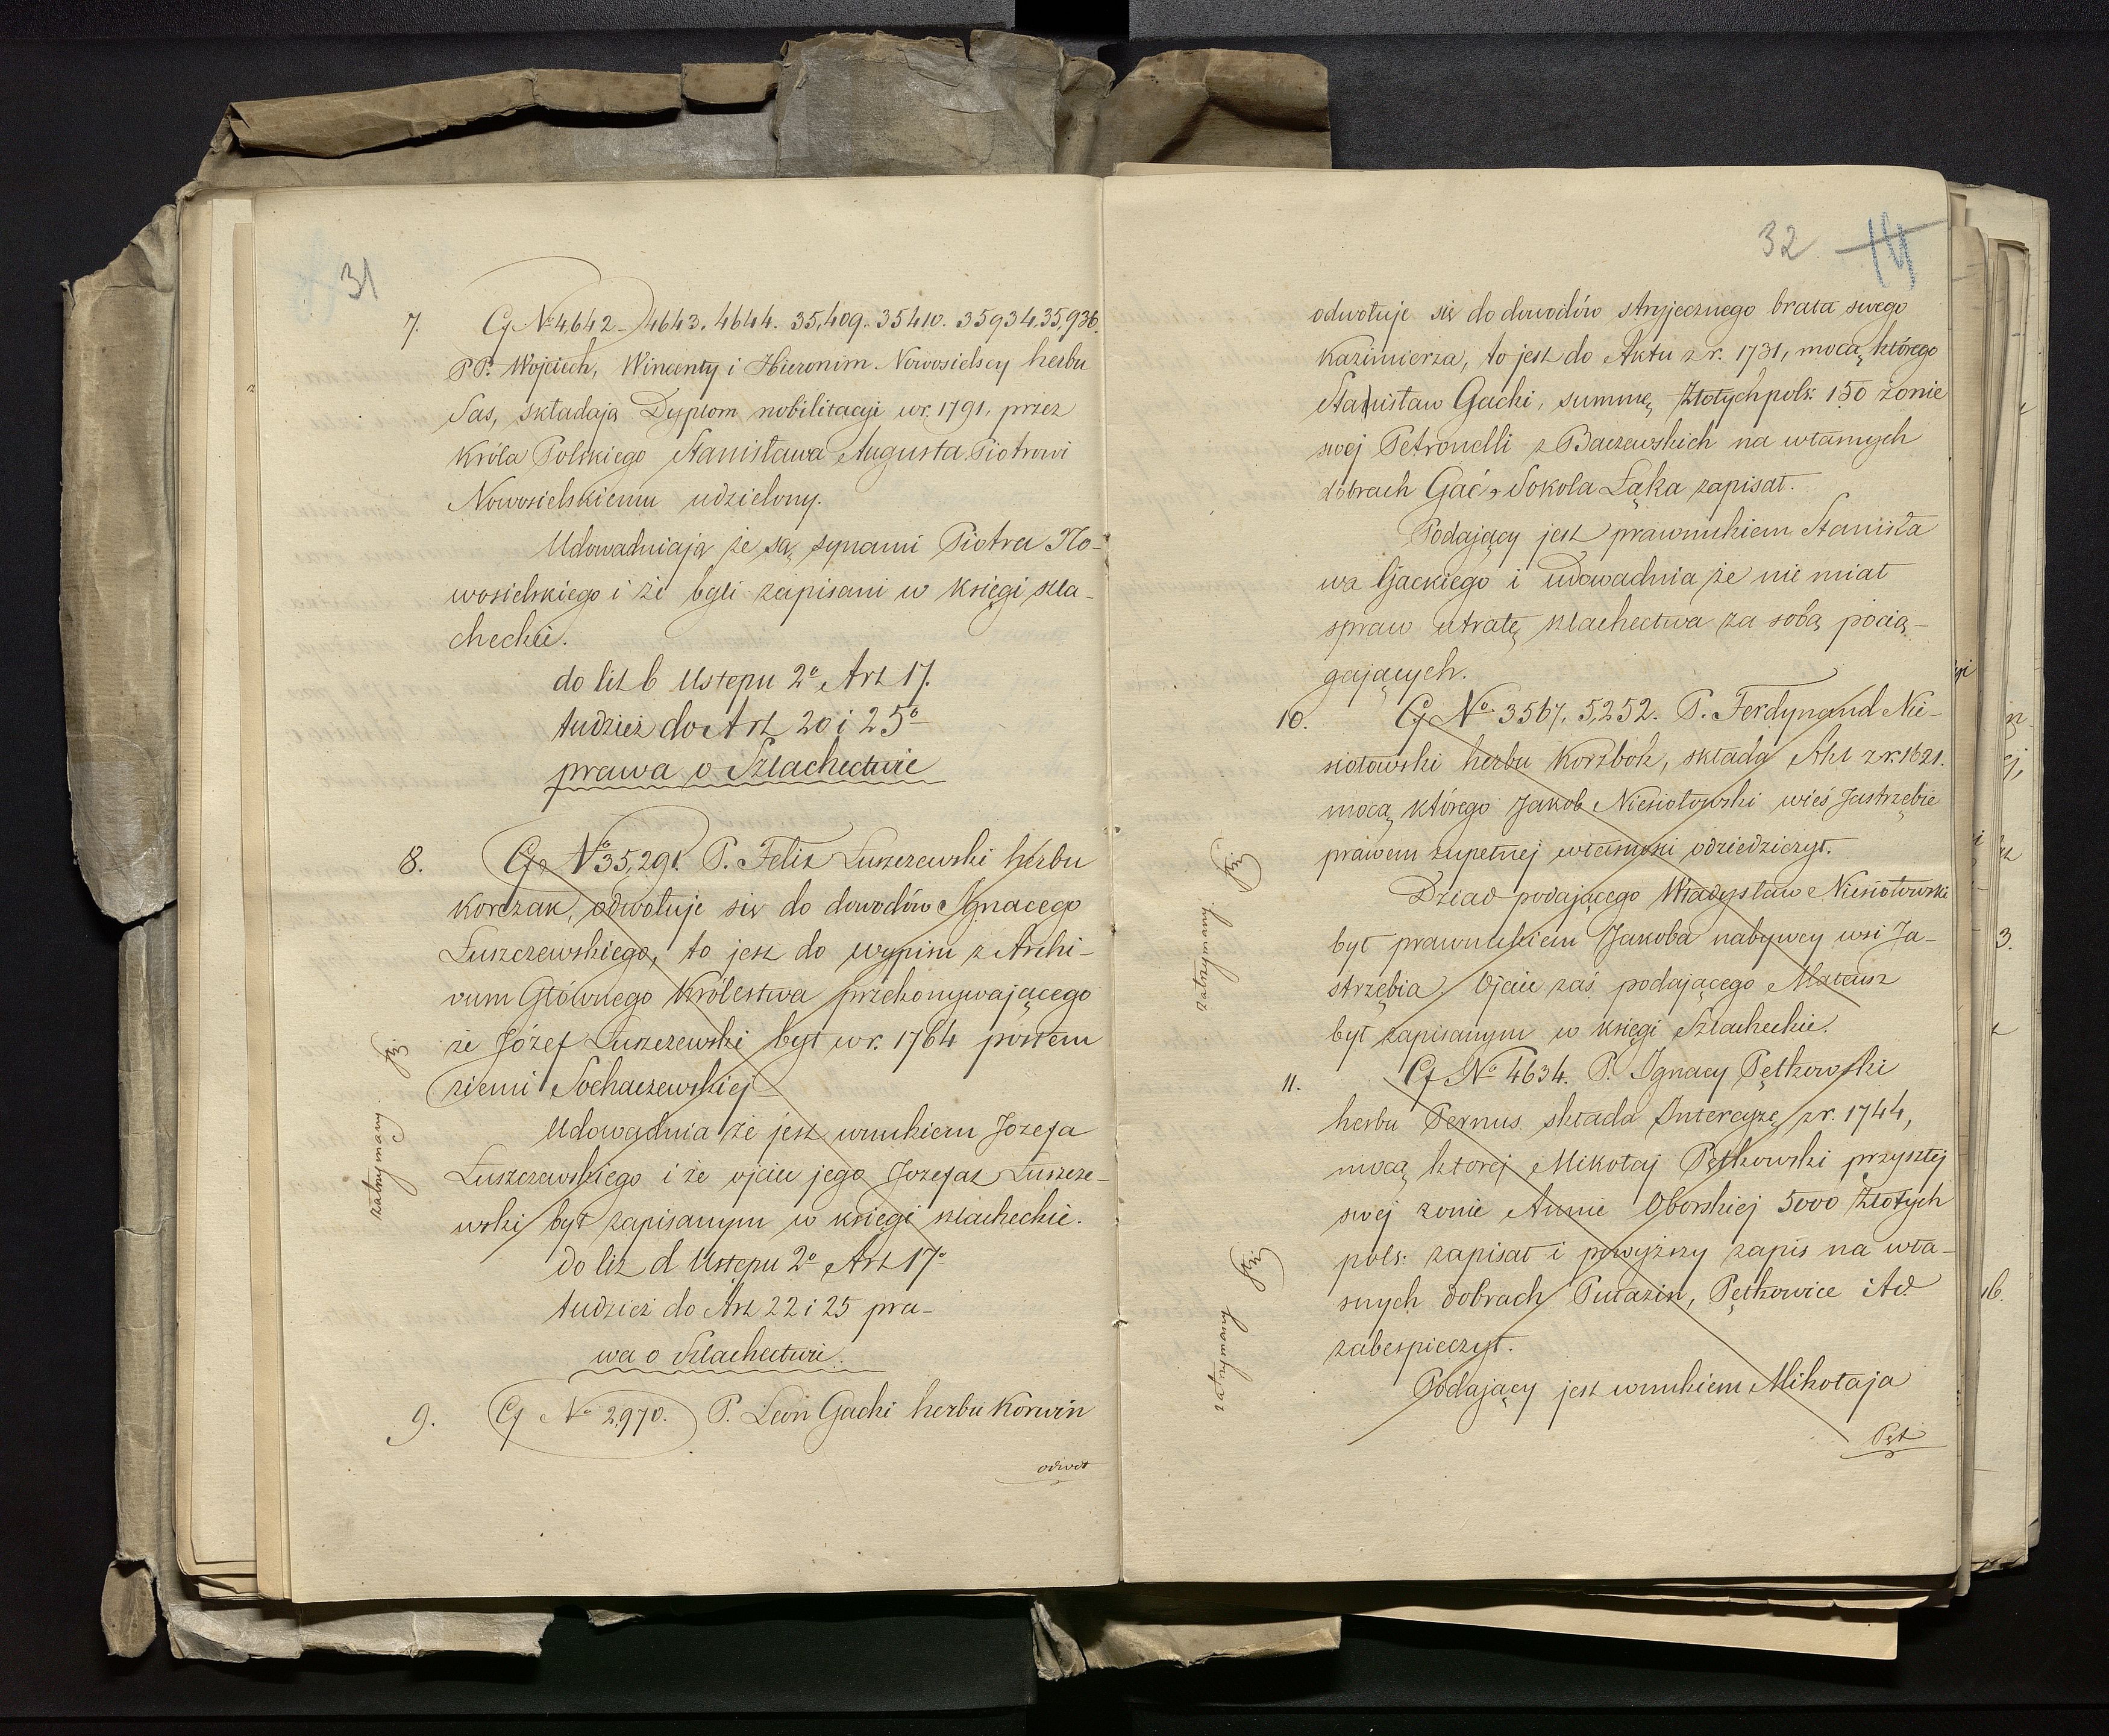 31
7. Cf N 4642 4643. 4644. 35,409. 35410. 35934. 35,936.
PP. Wojciech, Wincenty i Hieronim Nowosielscy herbu
Sas, składają Dyplom nobilitacyi w r. 1791, przez
Króla Polskiego Stanisława Augusta Piotrowi
Nowosielskiemu udzielony.
Udowadniają że są synami Piotra No-
wosielskiego i że byli zapisani w księgi szla-
checkie.
do lit b Ustępu 2º Art 17.
tudzież do Art 20 i 25º
prawa o Szlachectwie
8. Cf Nº 35,291. P. Felix Luszczewski herbu
Korczak, odwołuje się do dowodów Ignacego
Luszczewskiego, to jest do wypisu z Archi-
vum Głównego Królestwa przekonywającego
że Józef Luszczewski był w r. 1764 posłem
ziemi Sochaczewskiej
Udowadnia że jest wnukiem Jozefa
Luszczewskiego i że ojciec jego Jozefat Luszcze-
wski był zapisanym w księgi szlacheckie.
do lit d Ustępu 2º Art 17º
tudzież do Art 22 i 25 pra-
wa o Szlachectwie.
zatrzymany
9. Cf Nº 2,970. P. Leon Gacki herbu Korwin
odwoł
32
odwołuje się do dowodów stryjecznego brata swego
Kazimierza, to jest do Aktu z r. 1731, mocą którego
Stanisław Gacki, summę Złotych pols: 150 żonie
swej Petronelli z Baczewskich na własnych
dobrach Gać, Sokola Łąka zapisał.
Podający jest prawnukiem Stanisła
wa Gackiego i udowadnia że nie miał
spraw utratę szlachectwa za sobą pocią-
gających.
10. Cf Nº 3567. 5,252. P. Ferdynand Nie-
siołowski herbu Korzbok, składa Akt z r. 1621.
mocą którego Jakób Niesiołowski wieś Jastrzębie
prawem zupełnej własności odziedziczył.
Dziad podającego Władysław Niesiołowski
był prawnukiem Jakoba nabywcy wsi Ja-
strzębia. Ojciec zaś podającego Mateusz
był zapisanym w księgi Szlacheckie.
zatrzymany
11. Cf Nº 4634. P. Ignacy Pętkowski
herbu Pernus składa Intercyzę z r. 1744,
mocą ktorej Mikołaj Pętkowski przyszłej
swej żonie Annie Oborskiej 5000 Złotych
pols: zapisał i powyższy zapis na wła-
snych dobrach Pętkowice itd
zabespieczył.
Podający jest wnukiem Mikołaja
Pęt
zatrzymany